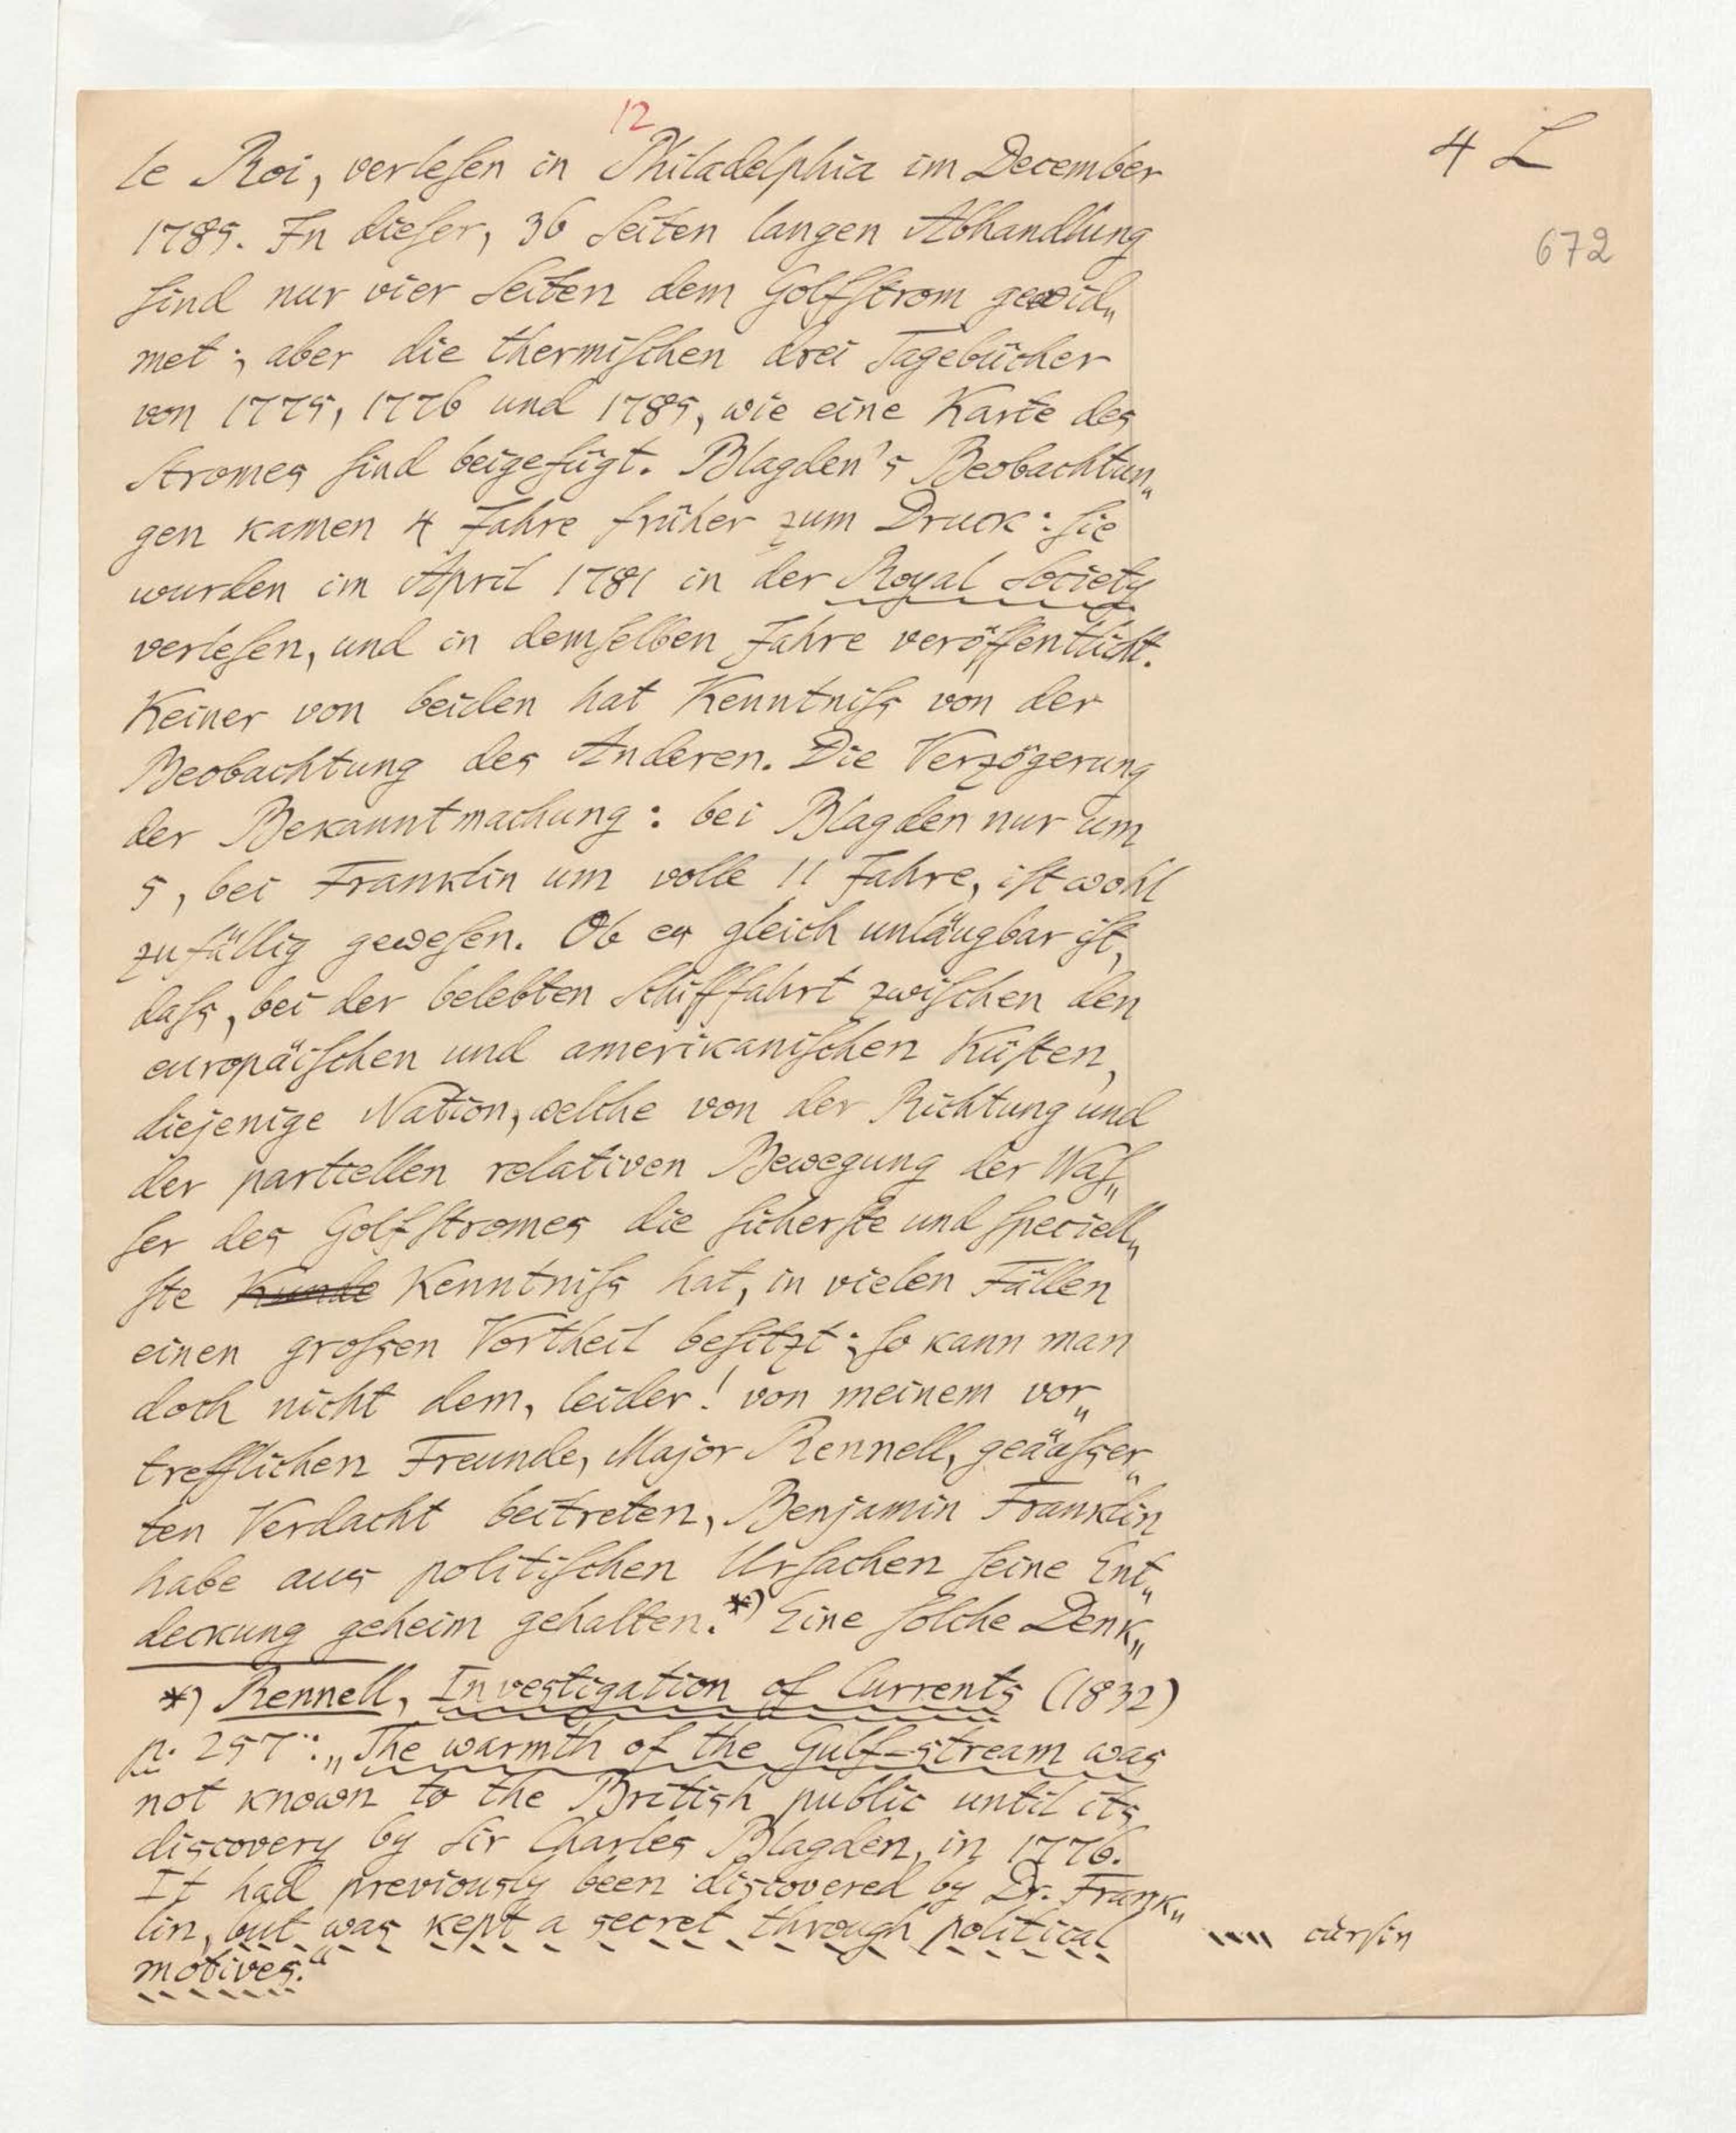 12
4 L
672
le Roi, verleſen in Philadelphia im December
1785. In dieſer, 36 Seiten langen Abhandlung
ſind nur vier Seiten dem Golfſtrom gewid„
met; aber die thermiſchen drei Tagebücher
von 1775, 1776 und 1785, wie eine Karte des
Stromes ſind beigefügt. Blagden's Beobachtun„
gen kamen 4 Jahre früher zum Druck: ſie
wurden im April 1781 in der Royal Society
verleſen, und in demſelben Jahre veröffentlicht.
Keiner von beiden hat Kenntniſs von der
Beobachtung des Anderen. Die Verzögerung
der Bekanntmachung: bei Blagden nur um
5, bei Franklin um volle 11 Jahre, iſt wohl
zufällig geweſen. Ob es gleich unläugbar iſt,
daſs, bei der belebten Schifffahrt zwiſchen den
europäiſchen und amerikaniſchen Küſten,
diejenige Nation, welche von der Richtung und
der partiellen relativen Bewegung der Waſ„
ſer des Golfſtromes die ſicherſte und ſpeciell„
ſte Kunde Kenntniſs hat, in vielen Fällen
einen groſsen Vortheil beſitzt; ſo kann man
doch nicht dem, leider! von meinem vor„
trefflichen Freunde, Major Rennell, geäuſser„
ten Verdacht beitreten, Benjamin Franklin
habe aus politiſchen Urſachen ſeine Ent„
deckung geheim gehalten.*) Eine ſolche Denk„
*) Rennell, Investigation of Currents (1832)
p. 257: „The warmth of the Gulf-stream was
not known to the British public until its
discovery by Sir Charles Blagden, in 1776.
It had previously been discovered by Dr. Frank„
lin, but was kept a secret through political
motives.“
curſiv